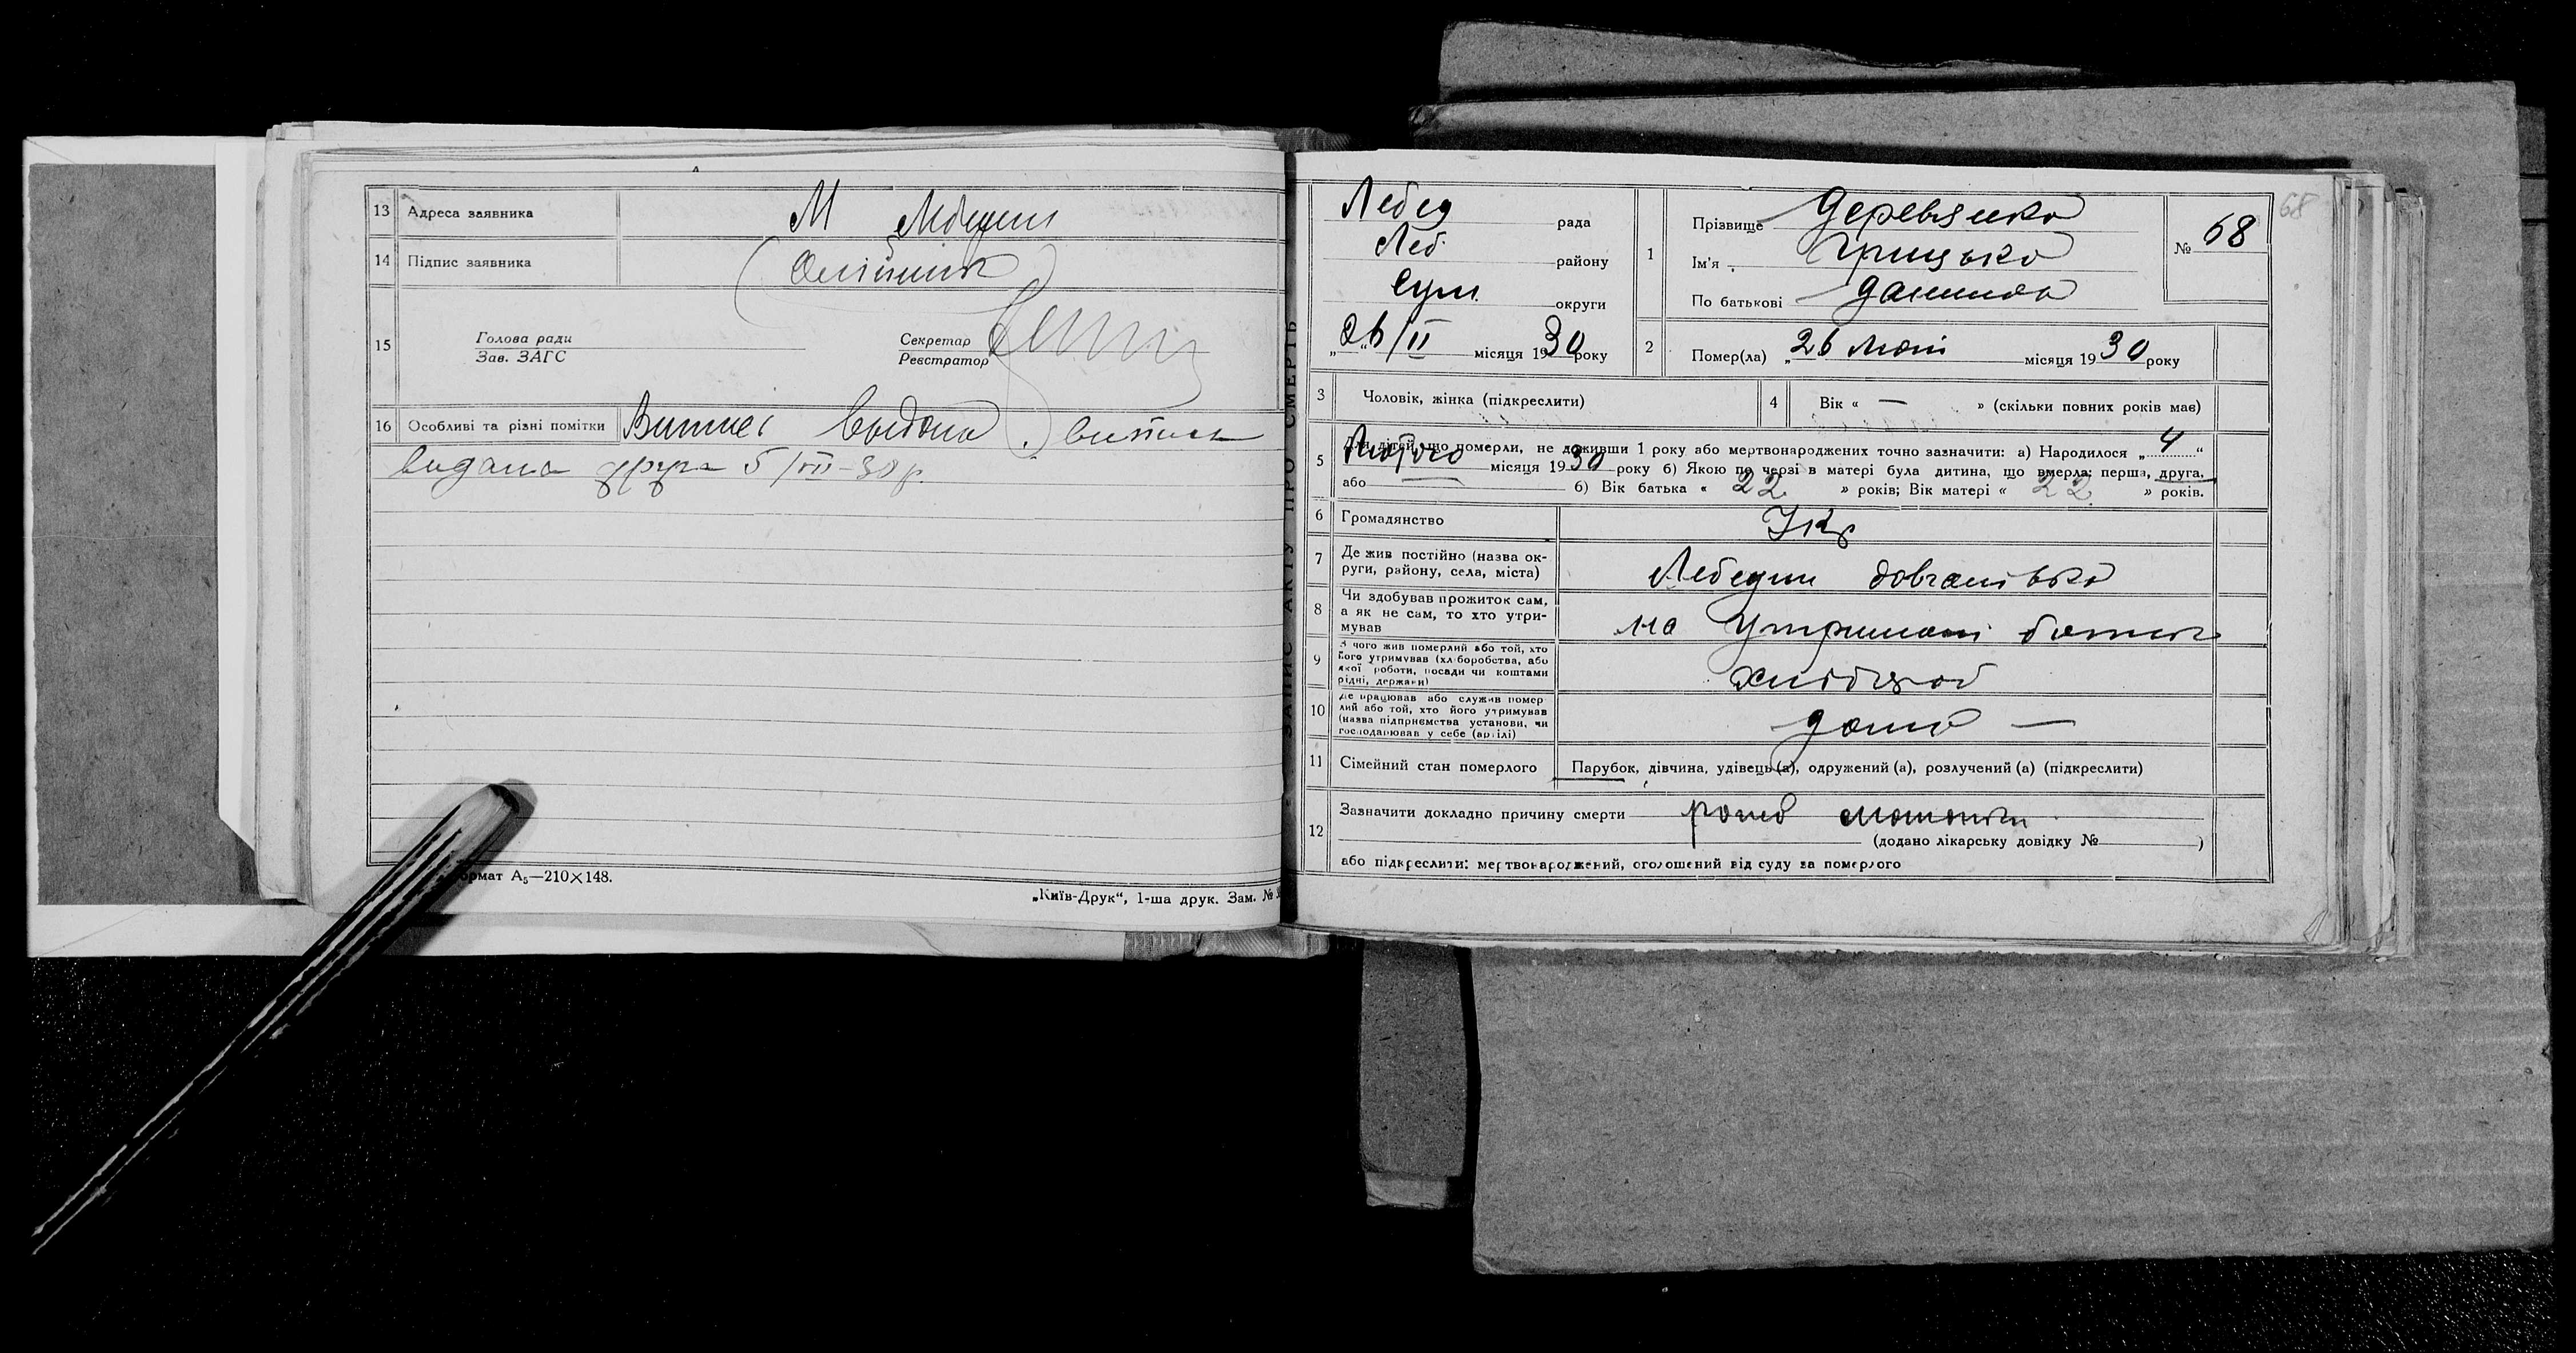 13 Адреса заявника М Лебедин
14 Підпис заявника (Олійник)
15 Голова ради
Зав. ЗАГС
Секретар
Реєстратор
16 Особливі та різні помітки Випис видана. виписка
видана друга 5/VII-30 р.
Формат А5—210×148.
„Київ-Друк“, 1-ша друк. Зам. №
ЗАПИС АКТУ ПРО СМЕРТЬ
68
Лебед рада
Леб. району
Сум. округи
„26/II місяця 1930 року
1 Прізвище Деревянко
Ім'я Грицько
По батькові Данилов
№ 68
2 Помер(ла) „26 лют місяця 1930 року
3 Чоловік, жінка (підкреслити)
4 Вік « — » (скільки повних років має)
5 Для дітей, що померли, не доживши 1 року або мертвонароджених точно зазначити: а) Народилося „4“
Лютого місяця 1930 року б) Якою по черзі в матері була дитина, що вмерла: перша, друга.
або — б) Вік батька « 22 » років; Вік матері « 22 » років.
6 Громадянство Укр
7 Де жив постійно (назва округи, району, села, міста) Лебедин
8 Чи здобував прожиток сам,
а як не сам, то хто утримував на утримані батьк
9 З чого жив померлий або той, хто
його утримував (хліборобства, або
якої роботи, посади чи коштами
рідні, держави)
10 Де працював або служив померлий або той, хто його утримував
(назва підприємства установи, чи
господарював у себе (артілі) дома —
11 Сімейний стан померлого Парубок, дівчина, удівець (а), одружений (а), розлучений (а) (підкреслити)
12 Зазначити докладно причину смерти
(додано лікарську довідку № )
або підкреслити: мертвонароджений, оголошений від суду за померлого